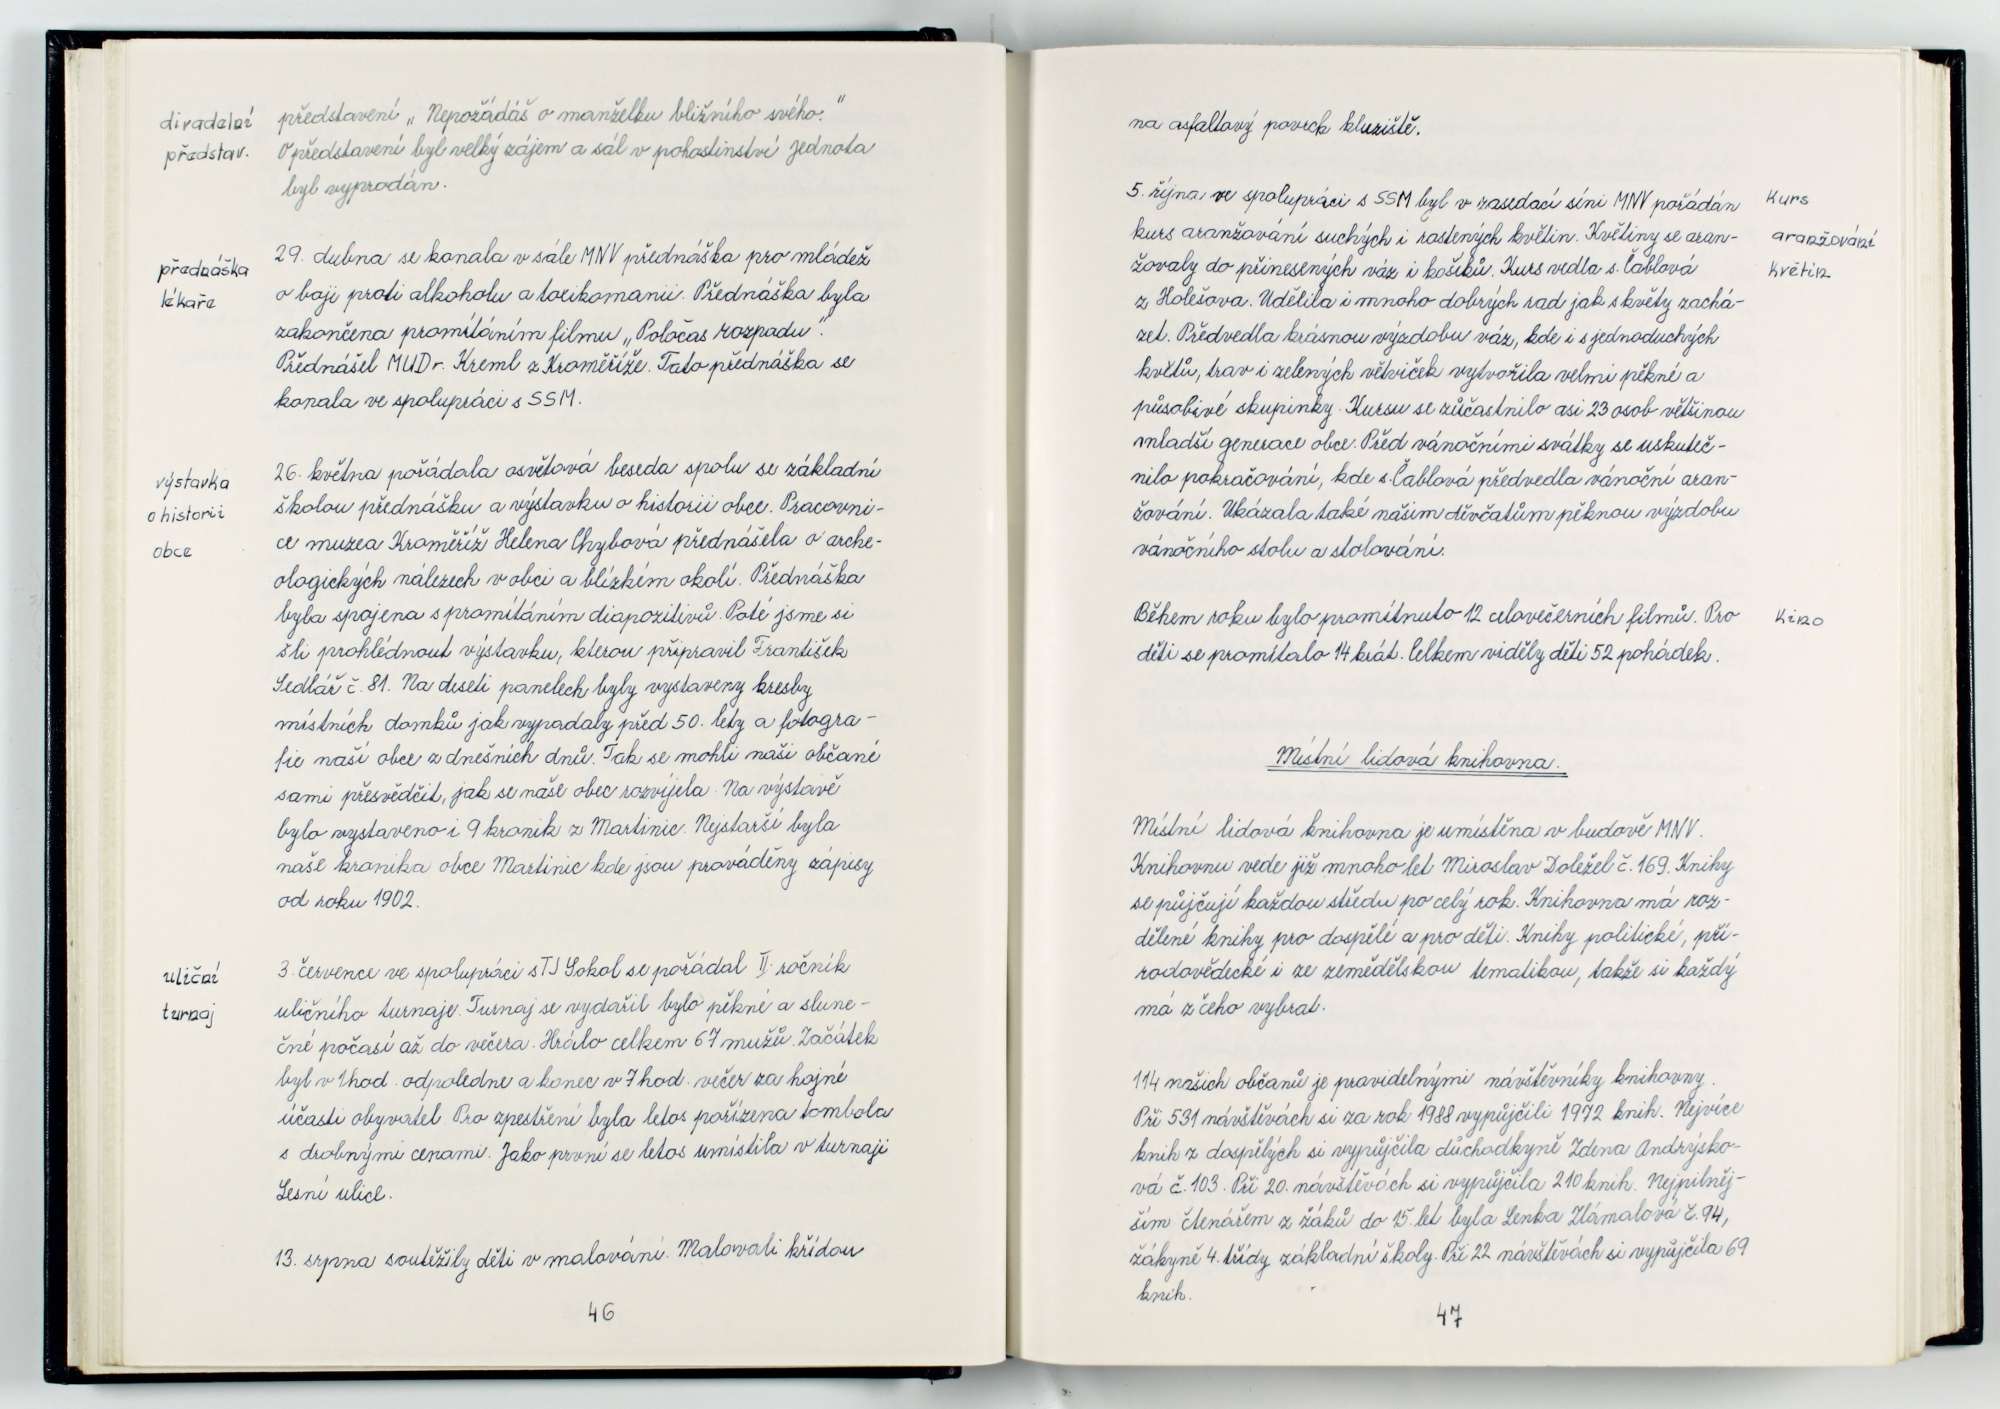 divadelní
představ.
představení „Nepožádáš o manželku bližního svého."
O představení byl velký zájem a sál v pohostinství Jednota
byl vyprodán.
přednáška
lékaře
29. dubna se konala v sále MNV přednáška pro mládež
o boji proti alkoholu a toxikomanii. Přednáška byla
zakončena promítáním filmu „Poločas rozpadu".
Přednášel MUDr. Kreml z Kroměříže. Tato přednáška se
konala ve spolupráci s SSM.
výstavka
o historii
obce
26. května pořádala osvětová beseda spolu se základní
školou přednášku a výstavku o historii obce. Pracovni-
ce muzea Kroměříž Helena Chybová přednášela o arche-
ologických nálezech v obci a blízkém okolí. Přednáška
byla spojena s promítáním diapozitivů. Poté jsme si
šli prohlédnout výstavku, kterou připravil František
Sedlář č. 81. Na deseti panelech byly vystaveny kresby
místních domků jak vypadaly před 50. lety a fotogra-
fie naší obce z dnešních dnů. Tak se mohli naši občané
sami přesvědčit, jak se naše obec rozvíjela. Na výstavě
bylo vystaveno i 9 kronik z Martinic. Nejstarší byla
naše kronika obce Martinic kde jsou prováděny zápisy
od roku 1902.
uliční
turnaj
3. července ve spolupráci s TJ Sokol se pořádal II. ročník
uličního turnaje. Turnaj se vydařil bylo pěkné a slune-
čné počasí až do večera. Hrálo celkem 67 mužů. Začátek
byl v 1 hod. odpoledne a konec v 7 hod. večer za hojné
účasti obyvatel. Pro zpestření byla letos pořízena tombola
s drobnými cenami. Jako první se letos umístila v turnaji
Lesní ulice.
13. srpna soutěžily děti v malování. Malovali křídou
46
na asfaltový povrch kluziště.
5. října ve spolupráci s SSM byl v zasedací síni MNV pořádán
kurs aranžování suchých i rostených květin. Květiny se aran-
žovaly do přinesených váz i košíků. Kurs vedla s. Čablová
z Holešova. Udělila i mnoho dobrých rad jak s květy zachá-
zet. Předvedla krásnou výzdobu váz, kde i s jednoduchých
květů, trav i zelených větviček vytvořila velmi pěkné a
působivé skupinky. Kursu se zúčastnilo asi 23 osob většinou
mladší generace obce. Před vánočními svátky se uskuteč-
nilo pokračování, kde s. Čablová předvedla vánoční aran-
žování. Ukázala také našim děvčatům pěknou výzdobu
vánočního stolu a stolování.
kurs
aranžování
květin
Během roku bylo promítnuto 12 celovečerních filmů. Pro
děti se promítalo 14 krát. Celkem viděly děti 52 pohádek.
kino
Místní lidová knihovna.
Místní lidová knihovna je umístěna v budově MNV.
Knihovnu vede již mnoho let Miroslav Doležel č. 169. Knihy
se půjčují každou středu po celý rok. Knihovna má roz-
dělené knihy pro dospělé a pro děti. Knihy politické, pří-
rodovědecké i ze zemědělskou tematikou, takže si každý
má z čeho vybrat.
114 našich občanů je pravidelnými návštěvníky knihovny.
Při 531 návštěvách si za rok 1988 vypůjčili 1972 knih. Nejvíce
knih z dospělých si vypůjčila důchodkyně Zdena Andrýsko-
vá č. 103. Při 20. návštěvách si vypůjčila 210 knih. Nejpilněj-
ším čtenářem z žáků do 15. let byla Lenka Zlámalová č. 94,
žákyně 4. třídy základní školy. Při 22 návštěvách si vypůjčila 69
knih.
47